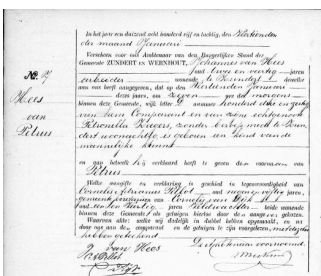 In het jaar een duizend acht honderd vijf en tachtig, den Veertienden
der maand Januari
Verscheen voor ons Ambtenaar van den Burgerlijken Stand der
Gemeente ZUNDERT en WERNHOUT, Johannes van Hees
oud twee en veertig jaren
arbeider wonende te Zundert, dewelke
aan ons heeft aangegeven, dat op den Veertienden Januari
van dezes jaars, om zeven ure des morgens
binnen deze Gemeente, wijk letter nummer honderd
van hem Comparant en van zijne echtgenoote
Petronella zonder beroep, mede te Zun-
dert woonachtig is geboren een kind van de
mannelijke kunne
en aan hetwelk hij verklaard heeft te geven den voornaam van
Petrus
Welke aangifte en verklaring is geschied in tegenwoordigheid van
Cornelis Adrianus oud negen en vijftig jaren,
en Cornelis van Dijk
oud veertig jaren beide wonende
binnen deze Gemeente, als getuigen hiertoe door den aangever gekozen.
Waarvan akte: welke wij dadelijk in dubbel hebben opgemaakt, en na
daar van aan den comparant en de getuigen te zijn voorgelezen, met dezelve
hebben geteekend
De Ambtenaar voornoemd,
J. van Hees
No. 7
Hees
van
Petrus